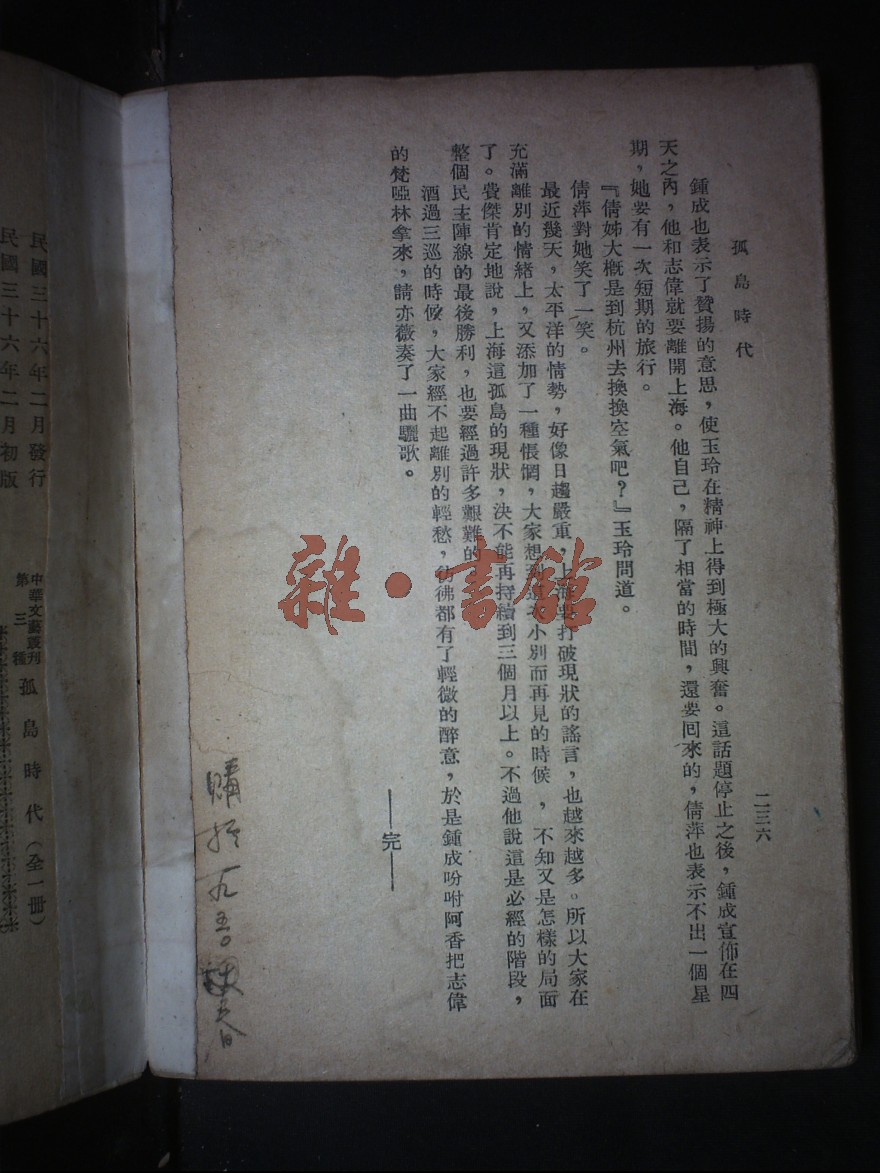 孤島時代
二三六
鍾成也表示了贊揚的意思，使玉玲在精神上得到極大的興奮。這話題停止之後，鍾成宣佈在四
天之內，他和志偉就要離開上海。他自己，隔了相當的時間，還要囘來的，倩萍也表示不出一個星
期，她要有一次短期的旅行。
『倩姊大槪是到杭州去換換空氣吧？』玉玲問道。
倩萍對她笑了一笑。
最近幾天，太平洋的情勢，好像日趨嚴重，上海要打破現狀的謠言，也越來越多。所以大家在
充滿離別的情緒上，又添加了一種悵惘，大家想到小別而再見的時候，不知又是怎樣的局面
了。費傑肯定地說，上海這孤島的現狀，決不能再持續到三個月以上。不過他說這是必經的階段，
整個民主陣線的最後勝利，也要經過許多艱難的
酒過三巡的時候，大家經不起離別的輕愁，彷彿都有了輕微的醉意，於是鍾成吩咐阿香把志偉
的梵啞林拿來，請亦薇奏了一曲驪歌。
——完——
雜·書館
購於一九五〇
中華文藝叢刊
第三種
孤島時代（全一册）
民國三十六年二月發行
民國三十六年二月初版